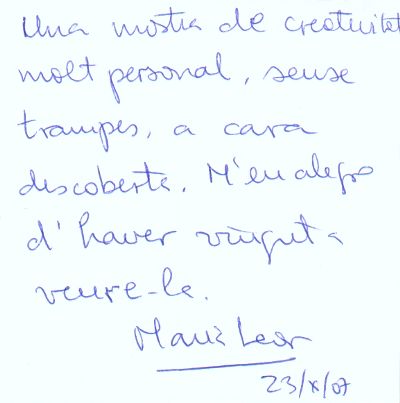 Una mostra de creativitat
molt personal, sense
trampes, a cara
descoberta. M'en alegro
d'haver vingut a
veure-la.
23/X/07